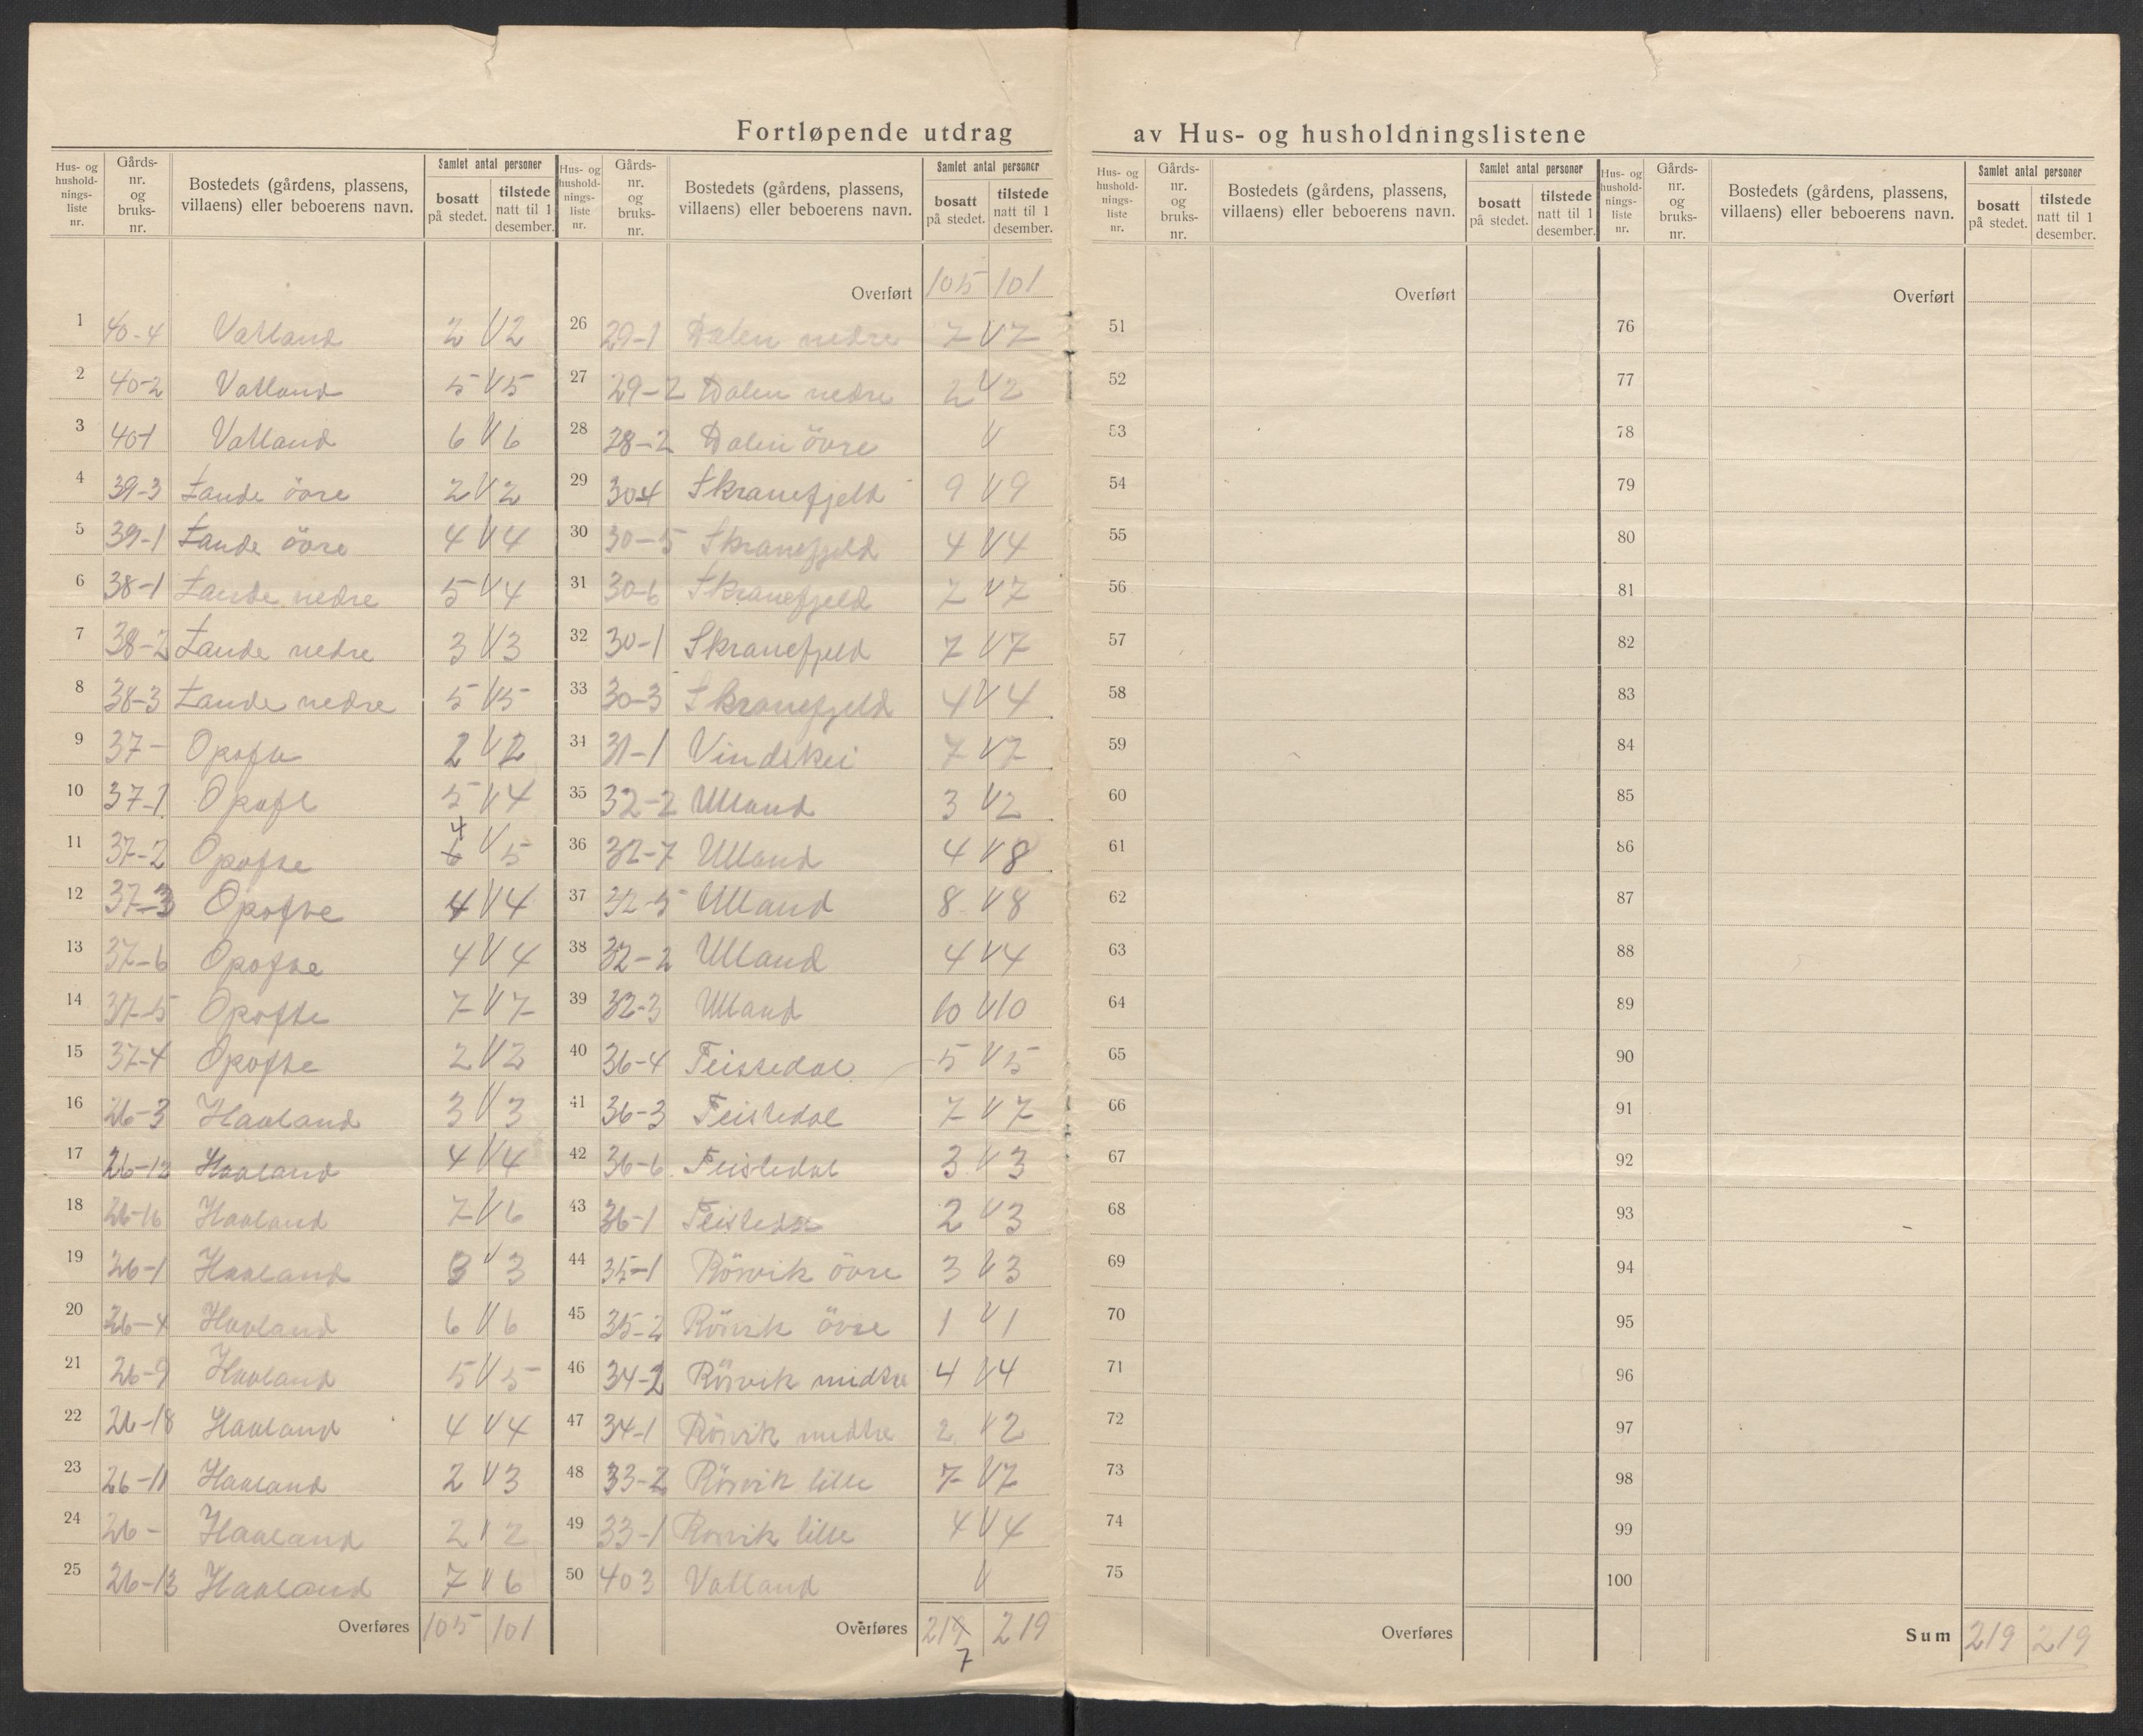 Fortløpende utdrag av Hus- og husholdningslistene
Hus- og husholdnings-liste nr. Gårds-nr. og bruks-nr. Bostedets (gårdens, plassens, villaens) eller beboerens navn. Samlet antal personer bosatt på stedet. tilstede natt til 1 desember.
1 40-4 Vatland 2 V 2
2 40-2 Vatland 5 V 5
3 40-1 Vatland 6 V 6
4 39-3 Lande övre 2 V 2
5 39-1 Lande övre 4 V 4
6 38-1 Lande nedre 5 V 4
7 38-2 Lande nedre 3 V 3
8 38-3 Lande nedre 5 V 5
9 37- Opofte 2 V 2
10 37-1 Opofte 5 V 4
11 37-2 Opofte 6 4 V 5
12 37-3 Opofte 4 V 4
13 37-6 Opofte 4 V 4
14 37-5 Opofte 7 V 7
15 37-4 Opofte 2 V 2
16 26-3 Haaland 3 V 3
17 26-12 Haaland 4 V 4
18 26-16 Haaland 7 V 6
19 26-1 Haaland 3 V 3
20 26-4 Haaland 6 V 6
21 26-9 Haaland 5 V 5
22 26-18 Haaland 4 V 4
23 26-11 Haaland 2 V 3
24 26- Haaland 2 V 2
25 26-13 Haaland 7 V 6
Overføres 105 101
Hus- og husholdnings-liste nr. Gårds-nr. og bruks-nr. Bostedets (gårdens, plassens, villaens) eller beboerens navn. Samlet antal personer bosatt på stedet. tilstede natt til 1 desember.
Overført 105 101
26 29-1 Dalen nedre 7 V 7
27 29-2 Dalen nedre 2 V 2
28 28-2 Dalen övre V
29 30-4 Skranefjeld 9 V 9
30 30-5 Skranefjeld 4 V 4
31 30-6 Skranefjeld 7 V 7
32 30-1 Skranefjeld 7 V 7
33 30-3 Skranefjeld 4 V 4
34 31-1 Vindskei 7 V 7
35 32-2 Ulland 3 V 2
36 32-7 Ulland 4 V 8
37 32-5 Ulland 8 V 8
38 32-2 Ulland 4 V 4
39 32-3 Ulland 10 V 10
40 36-4 Feistedal 5 V 5
41 36-3 Feistedal 7 V 7
42 36-6 Feistedal 3 V 3
43 36-1 Feistedal 2 V 3
44 35-1 Rörvik övre 3 V 3
45 35-2 Rörvik övre 1 V 1
46 34-2 Rörvik midtre 4 V 4
47 34-1 Rörvik midtre 2 V 2
48 33-2 Rörvik lille 7 V 7
49 33-1 Rörvik lille 4 V 4
50 40 3 Vatland V
Overføres 219 7 219
Hus- og hushold-nings-liste nr. Gårds-nr. og bruks-nr. Bostedets (gårdens, plassens, villaens) eller beboerens navn. Samlet antal personer bosatt på stedet. tilstede natt til 1 desember.
Overført
51
52
53
54
55
56
57
58
59
60
61
62
63
64
65
66
67
68
69
70
71
72
73
74
75
Overføres
Hus- og hushold-nings-liste nr. Gårds-nr. og bruks-nr. Bostedets (gårdens, plassens, villaens) eller beboerens navn. Samlet antal personer bosatt på stedet. tilstede natt til 1 desember.
Overført
76
77
78
79
80
81
82
83
84
85
86
87
88
89
90
91
92
93
94
95
96
97
98
99
100
Sum 219 219